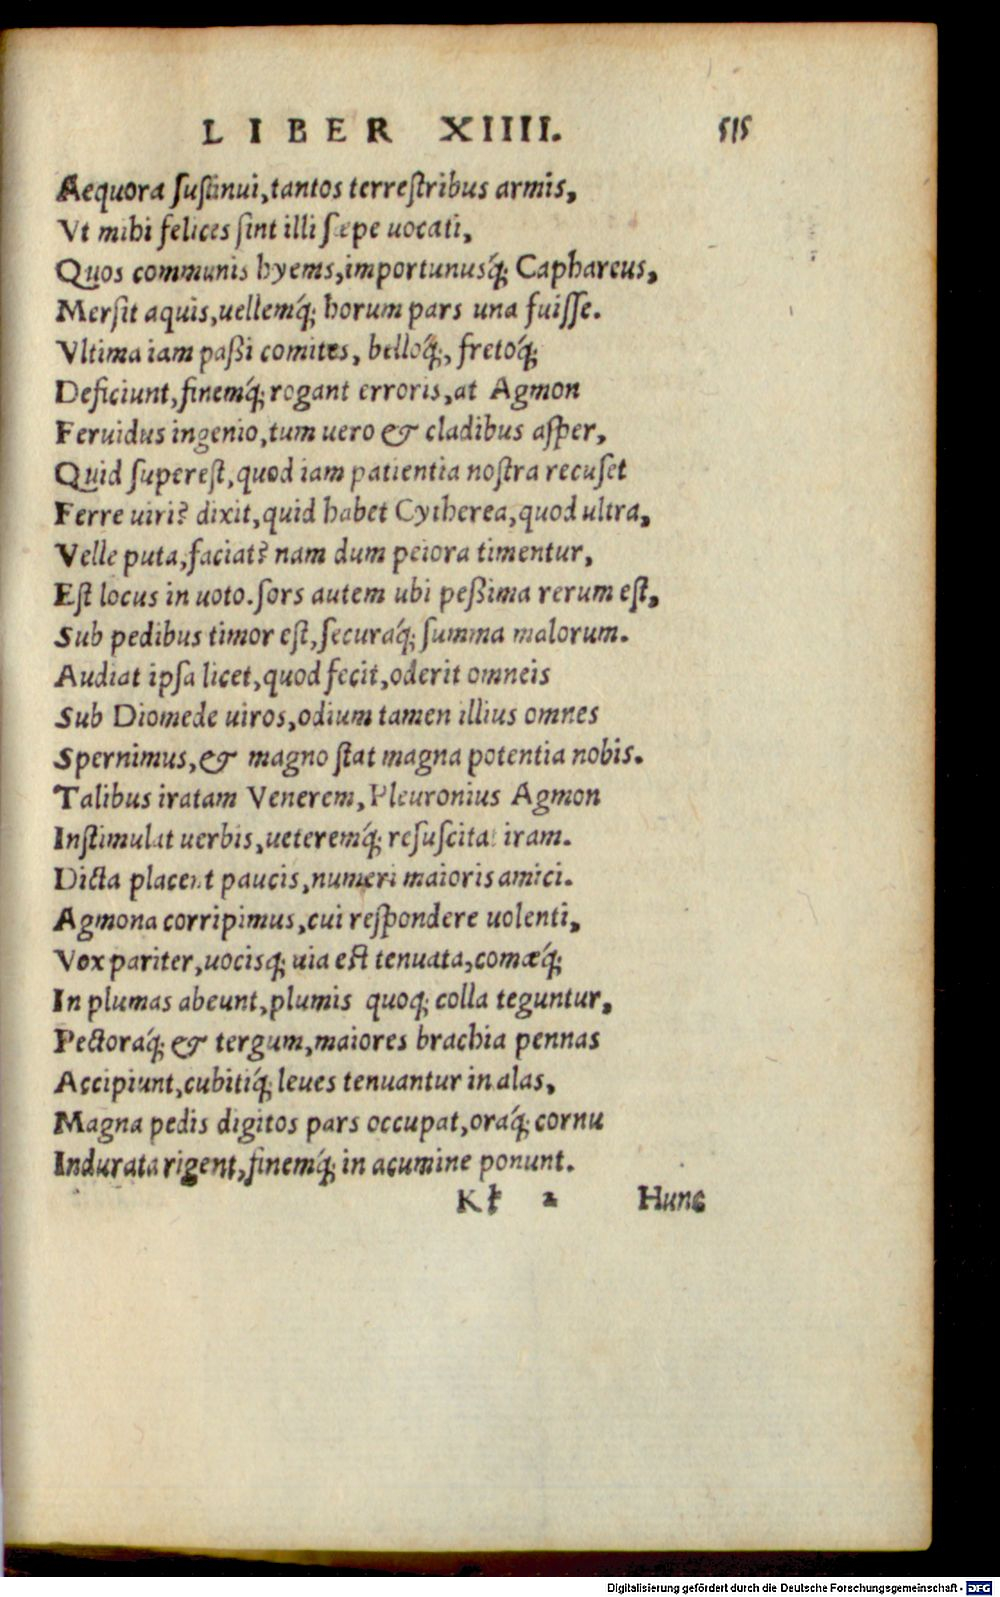 LIBER XIIII. 515
Aequora sustinui, tantos terrestribus armis,
Vt mihi felices sint illi sæpe uocati,
Quos communis hyems, importunusq́; Caphareus,
Mersit aquis, uellemq́; horum pars una fuisse.
Vltima iam paßi comites, belloq́;, fretoq́;
Deficiunt, finemq́; rogant erroris, at Agmon
Feruidus ingenio, tum uero & cladibus asper,
Quid superest, quod iam patientia nostra recuset
Ferre uiri? dixit, quid habet Cytherea, quod ultra,
Velle puta, faciat? nam dum peiora timentur,
Est locus in uoto. sors autem ubi peßima rerum est,
Sub pedibus timor est, securaq́; summa malorum.
Audiat ipsa licet, quod fecit, oderit omneis
Sub Diomede uiros, odium tamen illius omnes
Spernimus, & magno stat magna potentia nobis.
Talibus iratam Venerem, Pleuronius Agmon
Instimulat uerbis, ueteremq́; resuscitat iram.
Dicta placent paucis, numeri maioris amici.
Agmona corripimus, cui respondere uolenti,
Vox pariter, uocisq; uia est tenuata, comæq́;
In plumas abeunt, plumis quoq; colla teguntur,
Pectoraq́; & tergum, maiores brachia pennas
Accipiunt, cubitiq́; leues tenuantur in alas,
Magna pedis digitos pars occupat, oraq́; cornu
Indurata rigent, finemq́; in acumine ponunt.
Kk 2 Hunc
Digitalisierung gefördert durch die Deutsche Forschungsgemeinschaft - DFG